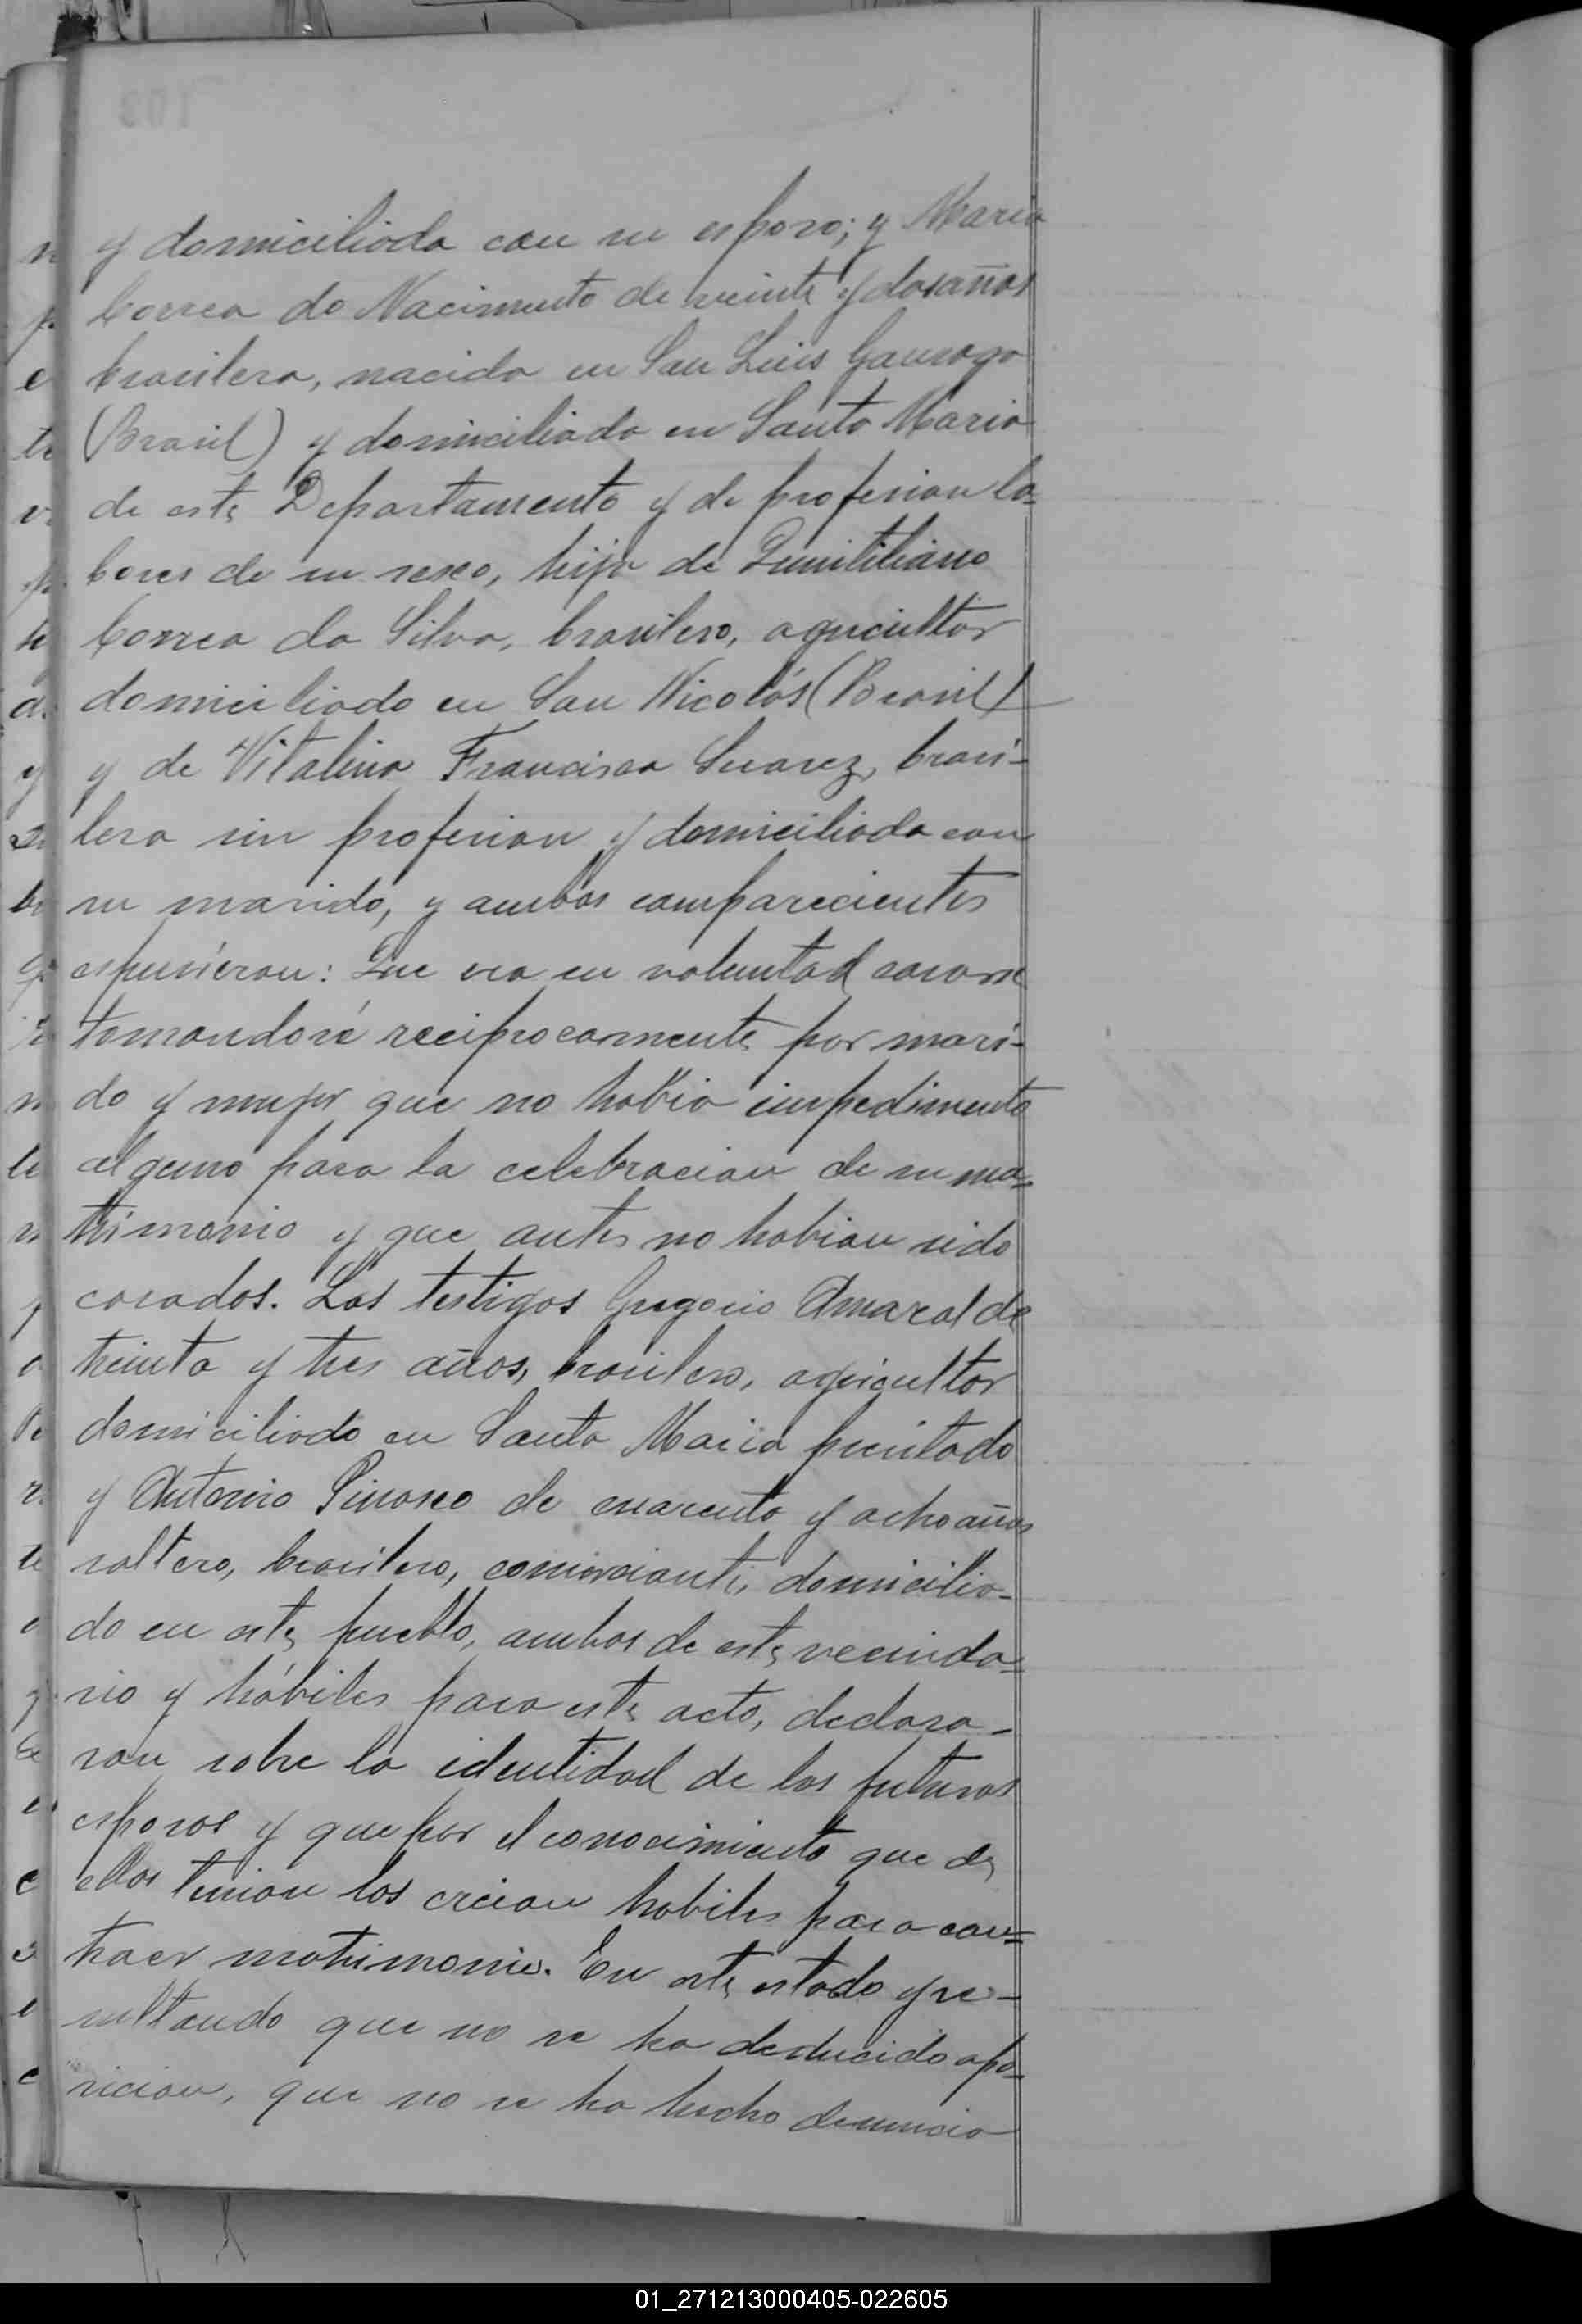 y domiciliada con su esposo; y Maria
Correa do Nacimento de veinte y dos años
brasilera, nacida en San Luis Gonzaga
(Brasil) y domiciliada en Santa Maria
de este Departamento y de profesion la=
bores de su sexo, hija de Quintiliano
Correa da Silva, brasilero, agricultor
domiciliado en San Nicolás (Brasil)
y de Vitalina Francisca Suarez, brasi-
lera sin profesion y domiciliada con
su marido, y ambos comparecientes
espusieron: Que era su voluntad casarse
tomandosé reciprocamente por mari-
do y mujer que no habia impedimento
alguno para la celebracion de su ma=
trimonio y que antes no habian sido
casados. Los testigos Gregorio Amaral de
treinta y tres años, brasilero, agricultor
domiciliado en Santa Maria precitado
y Antonio de cuarenta y ocho años
soltero, brasilero, comerciante, domicilia-
do en este pueblo, ambos de este vecinda=
rio y hábiles para este acto, declara-
ron sobre la identidad de los futuros
esposos y que por el conocimiento que de
ellos tenian los creian habiles para con=
traer matrimonio. En este estado y re-
sultando que no se ha deducido opo=
sicion, que no se ha hecho denuncia
01_271213000405-022605